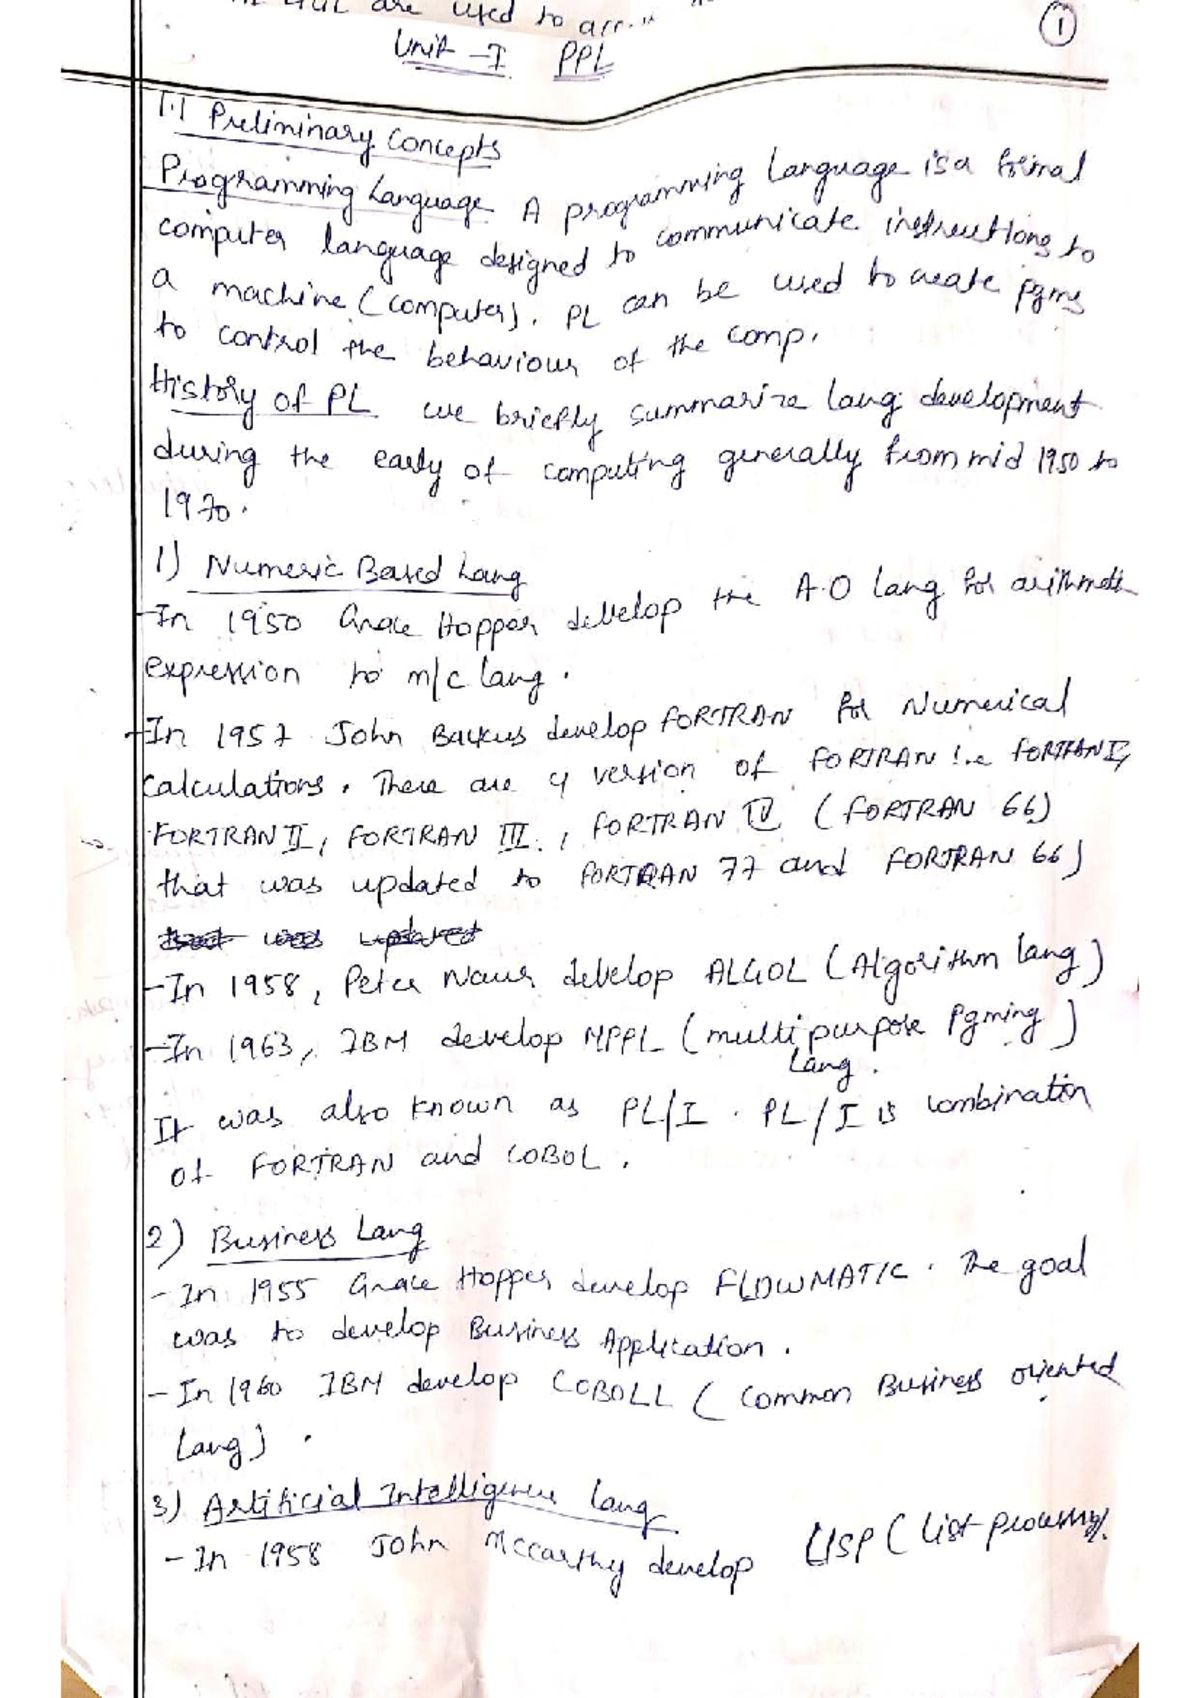 are used to
1
Unit - I PPL
1.1 Preliminary Concepts
Programming Language A programming Language is a formal
computer language designed to communicate instructions to
a machine (computer). PL can be used to create pgms
to control the behaviour of the comp.
History of PL we briefly summarize lang development
during the early of computing generally from mid 1950 to
1970.
1) Numeric Based Lang
-In 1950 Grace Hopper develop the A.O lang for arithmetic
expression to m/c lang.
-In 1957 John Backus develop FORTRAN for Numerical
calculations. There are 4 version of FORTRAN i.e FORTRAN I,
FORTRAN II, FORTRAN III, FORTRAN IV (FORTRAN 66)
that was updated to FORTRAN 77 and FORTRAN 66)
that was updated
-In 1958, Peter Naur develop ALGOL (Algorithm lang)
-In 1963, IBM develop MPPL (multipurpose Pgming)
Lang.
It was also known as PL/I. PL/I is combination
of FORTRAN and COBOL.
2) Business Lang
- In 1955 Grace Hopper develop FLOWMATIC. The goal
was to develop Business Application.
- In 1960 IBM develop COBOLL (Common Business oriented
Lang).
3) Artificial Intelligence Lang
- In 1958 John Mccarthy develop LISP (List processing).